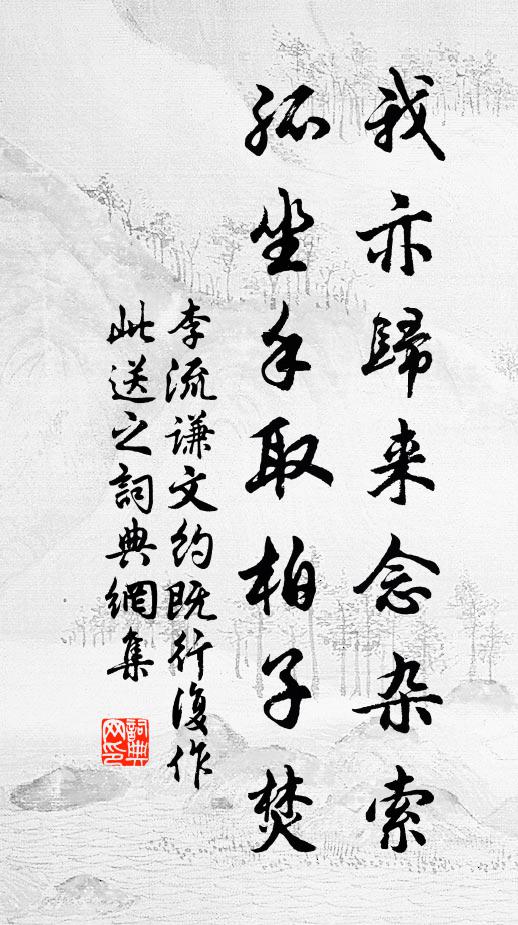 我亦歸来念杂索
孤坐手取柏子焚
李流谦文约既行復作
此送之詞典網集
詞典
网印